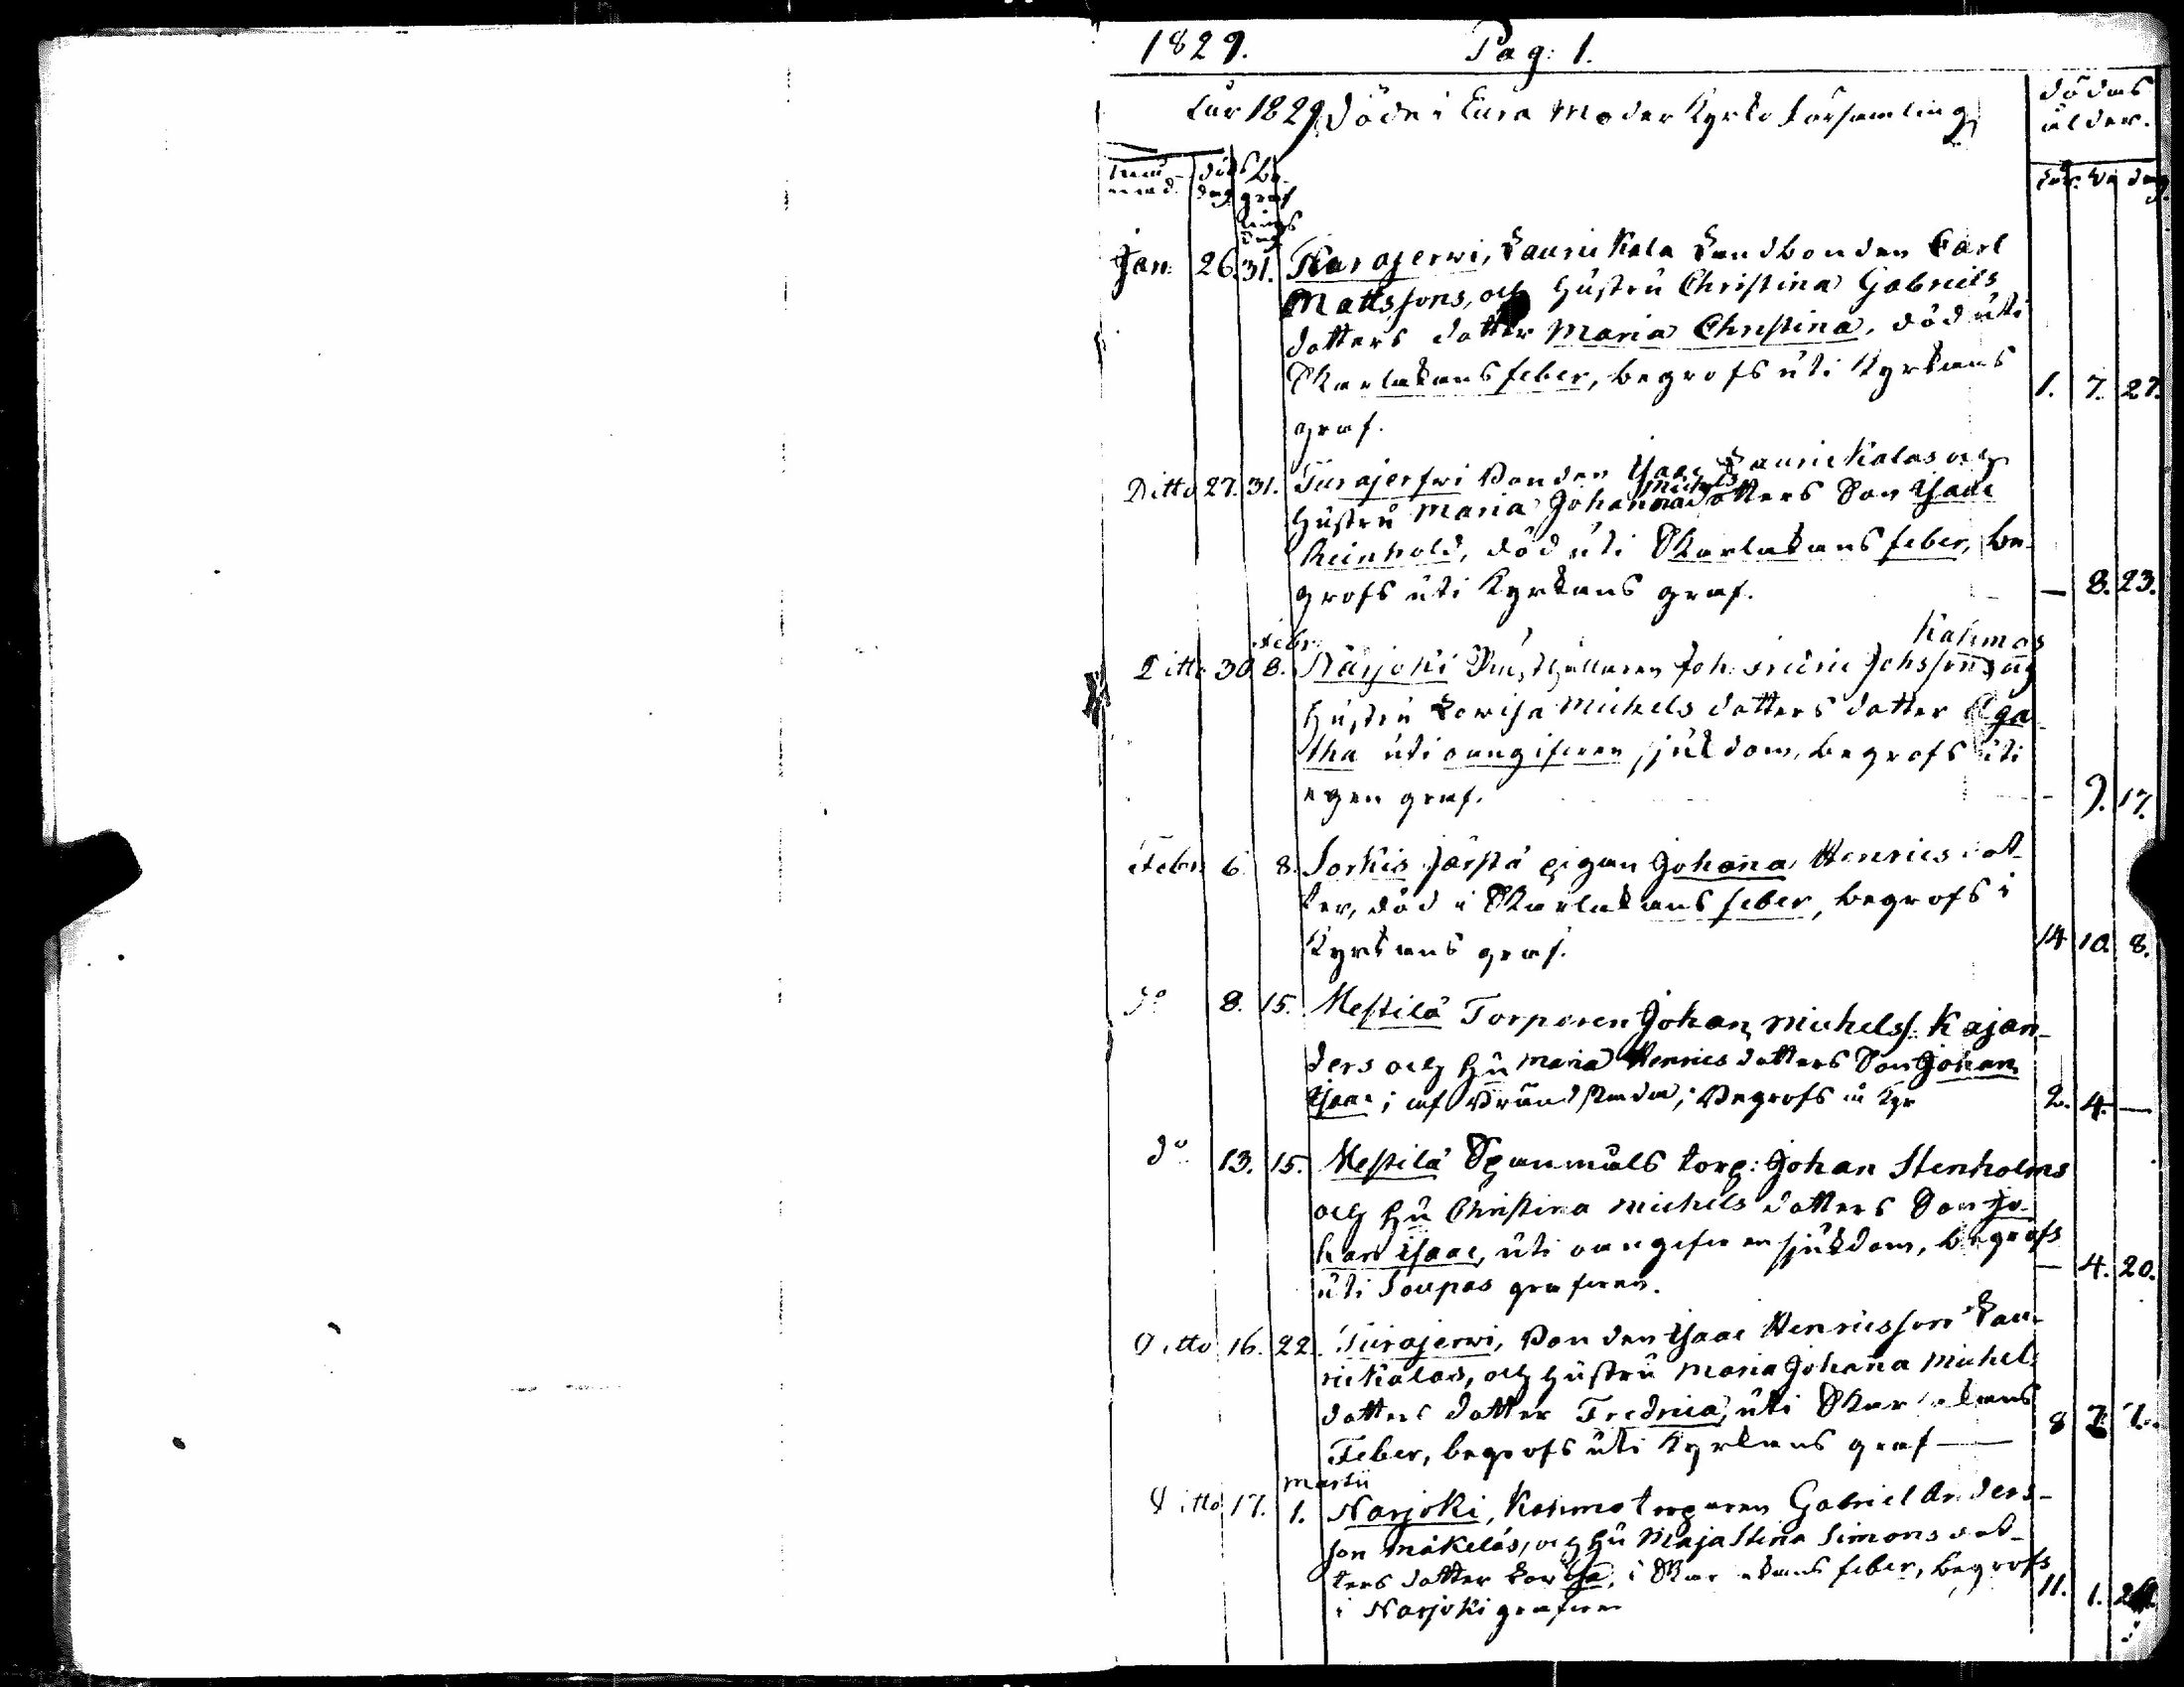 1829. Pag: 1.
År 1829 Döde i Eura Moder Kyrko Församling
dödas
ålder.
Må-
nad. döds
dag. Be-
graf
nings
dag år. m dag.
Jan: 26. 31. Turajerwi, Laurikala Landbonden Carl
Mattssons, och Hustru Christina Gabriels
dotters dotter Maria Christina, död uti
Skarlakansfeber, begrofs uti Kyrkans
graf. 1. 7. 27.
Ditto 27. 31. Turajerfwi Bonden Isaac Laurikalas och
Hustru Maria Johanna Michels dotters Son Isaac
Reinhold, död uti Skarlakans feber, be-
grofs uti Kyrkans graf. — 8. 23.
Ditto 30 Febr: 8. Närjoki Joh: Fridric Johssons Kahmas och
Hustru Lowisa Michels dotters dotter Aga-
tha uti oangifwen sjukdom, begrofs uti
egen graf. — 9. 17.
Febr: 6. 8. Sorkis Järstä pigan Johanna Henrics dot-
ter, död i Skarlakans feber, begrofs i
Kyrkans graf. 14 10. 8.
do 8. 15. Mestilä Torparen Johan Michelss: Kajan-
ders och Hu Maria Henrics dotters Son Johan
Isaac; af Brändskada; Begrofs i Kyr 2. 4. —
do 13. 15. Mestilä Spanmåls torp: Johan Stenholms
och Hu Christina Michels dotters Son Jo-
han Isaac, uti oangifwen sjukdom, begrofs
uti Soupas grafwen. — 4. 20.
Ditto 16. 22. Turajerwi, Bonden Isaac Henricsson Lau-
rikalas, och Hustru Maria Johanna Michels
dotters dotter Fredrica, uti Skarlakans
Feber, begrofs uti Kyrkans graf — 8
Ditto 17. Martii 1. Narjoki, Kahmo torparen Gabriel Anders-
son Mäkeläs, och Hu Maja Stina Simons dot-
ters dotter Lowisa, i Skarlakans feber, begrofs
i Narjoki grafwen 11. 1.